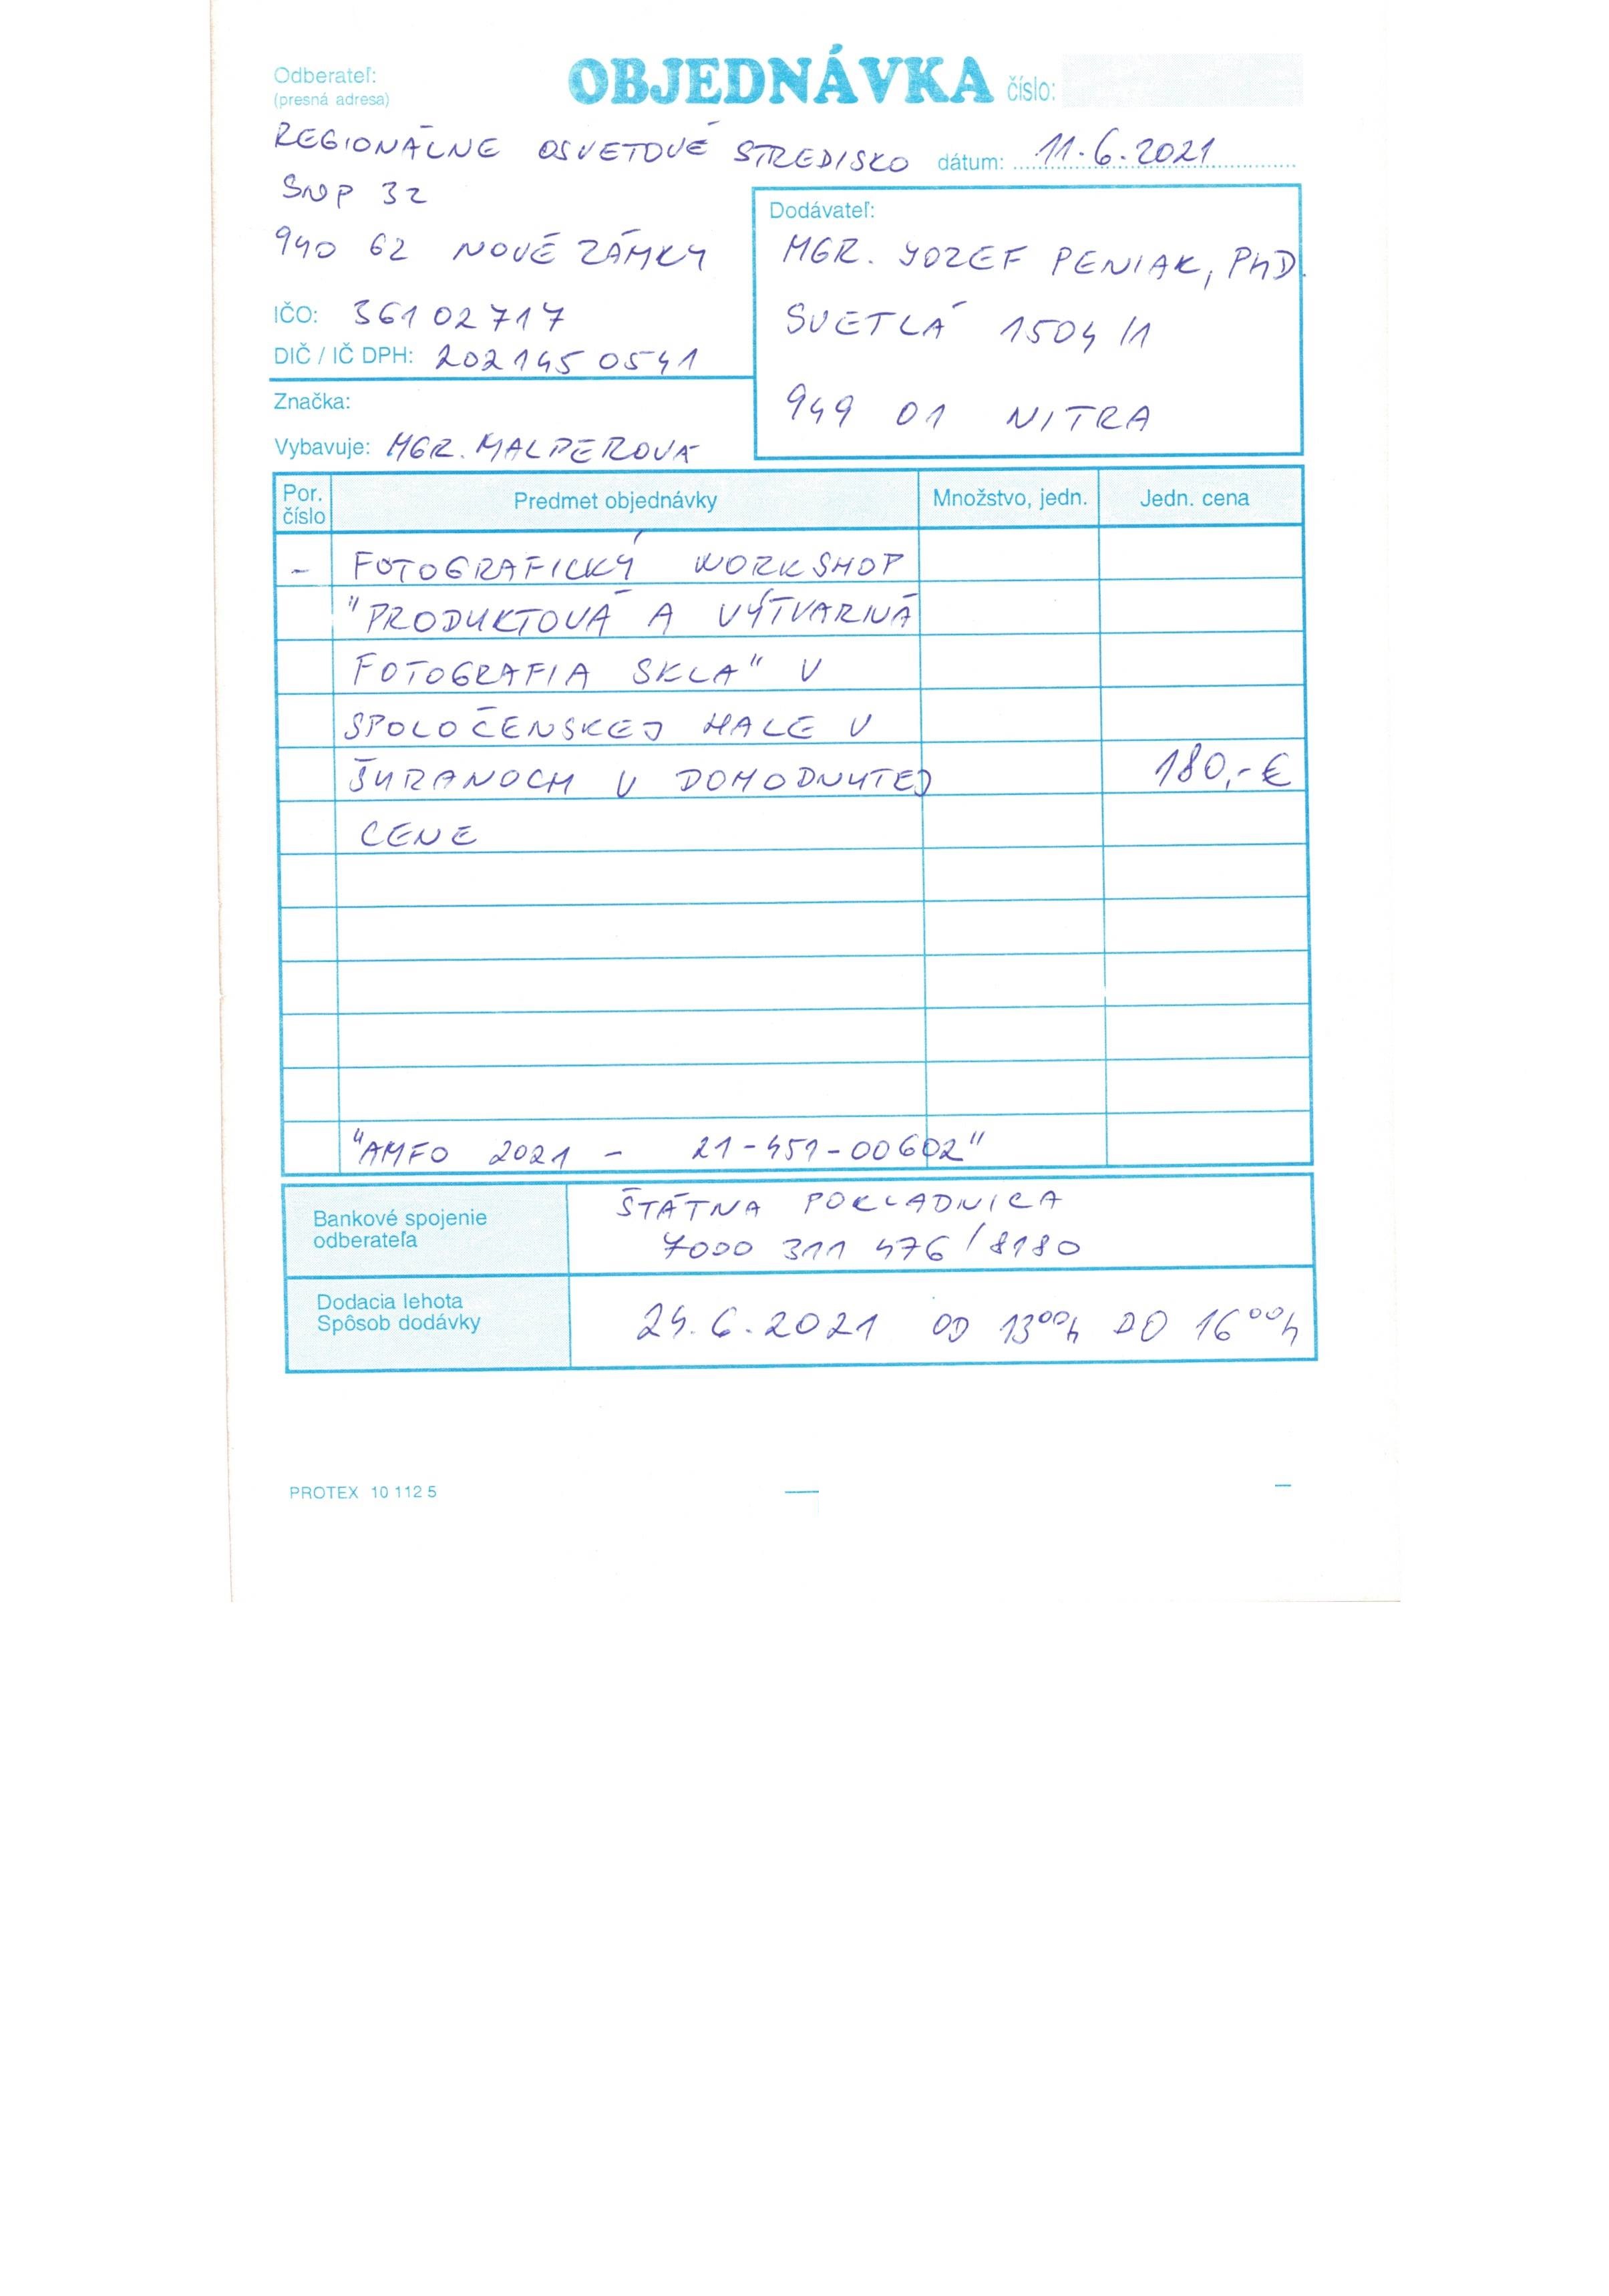 Odberateľ:
(presná adresa)
OBJEDNÁVKA číslo:
REGIONÁLNE OSVETOVÉ STREDISKO
dátum: 11.6.2021
SNP 32
940 62 NOVÉ ZÁMKY
IČO: 36102717
DIČ / IČ DPH: 2021450541
Značka:
Vybavuje: MGR. MALPEROVÁ
Dodávateľ:
MGR. JOZEF PENIAK, PhD.
SVETLÁ 1504/1
949 01 NITRA
Por. číslo Predmet objednávky Množstvo, jedn. Jedn. cena
- FOTOGRAFICKÝ WORKSHOP
"PRODUKTOVÁ A VÝTVARNÁ
FOTOGRAFIA SKLA" V
SPOLOČENSKEJ HALE V
ŠURANOCH V DOHODNUTEJ 180,-€
CENE
"AMFO 2021 - 21-451-00602"
Bankové spojenie
odberateľa
ŠTÁTNA POKLADNICA
7000 311 476/8180
Dodacia lehota
Spôsob dodávky
24.6.2021 OD 13⁰⁰h DO 16⁰⁰h
PROTEX 10 112 5